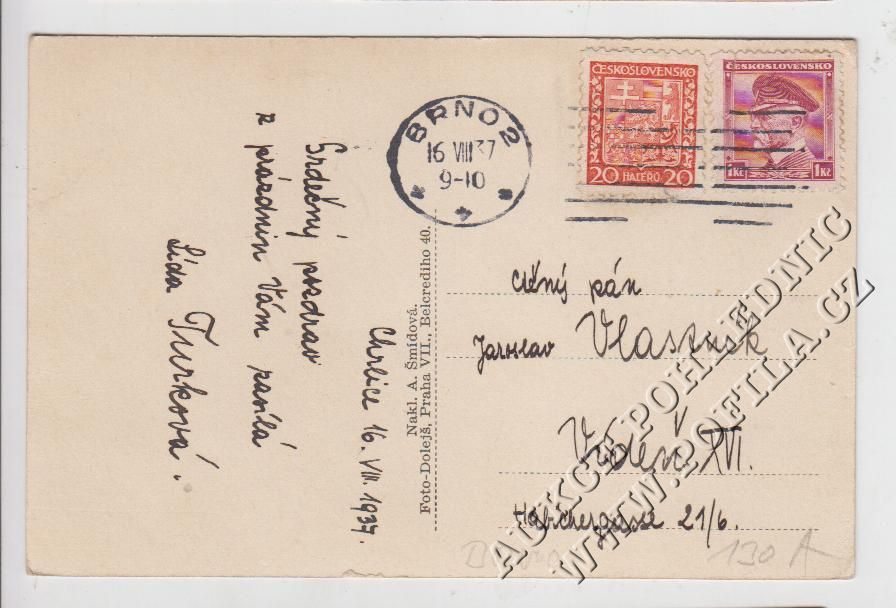 Srdečný pozdrav
z prázdnin Vám zasílá
Lída Turková.
Chrlice 16. VIII. 1937.
Nakl. A. Šmídová.
Foto-Dolejš, Praha VII., Belcrediho 40.
BRNO 2
16 VIII 37
9-10
ČESKOSLOVENSKO
20 HALÉŘŮ 20
ČESKOSLOVENSKO
1Kč 1Kč
Ctěný pán
Jaroslav Vlastník
Vídeň XVI.
Habichergasse 21/6.
130 A
AUKCE POHLEDNIC
WWW.POFILA.CZ